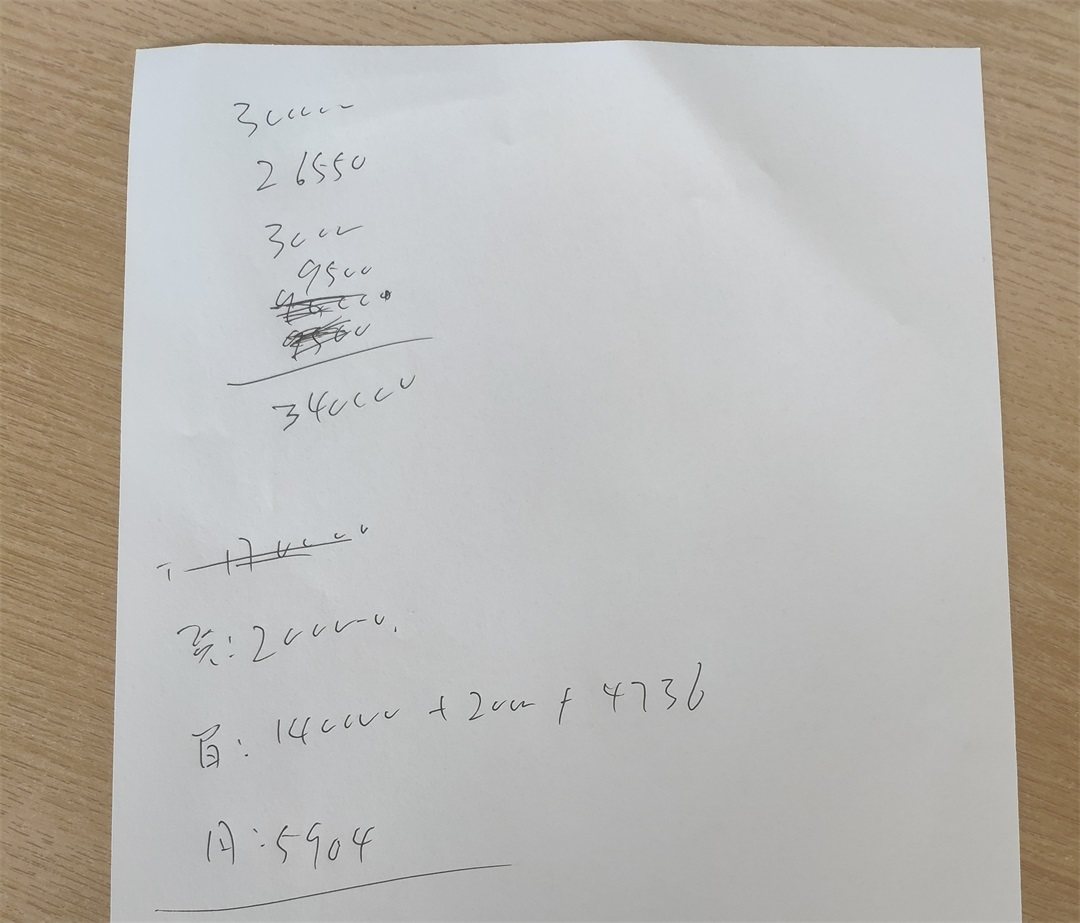 300000
26550
3000
9500
340000
170000
贷:200000.
首:140000+2000+4736
月:5904